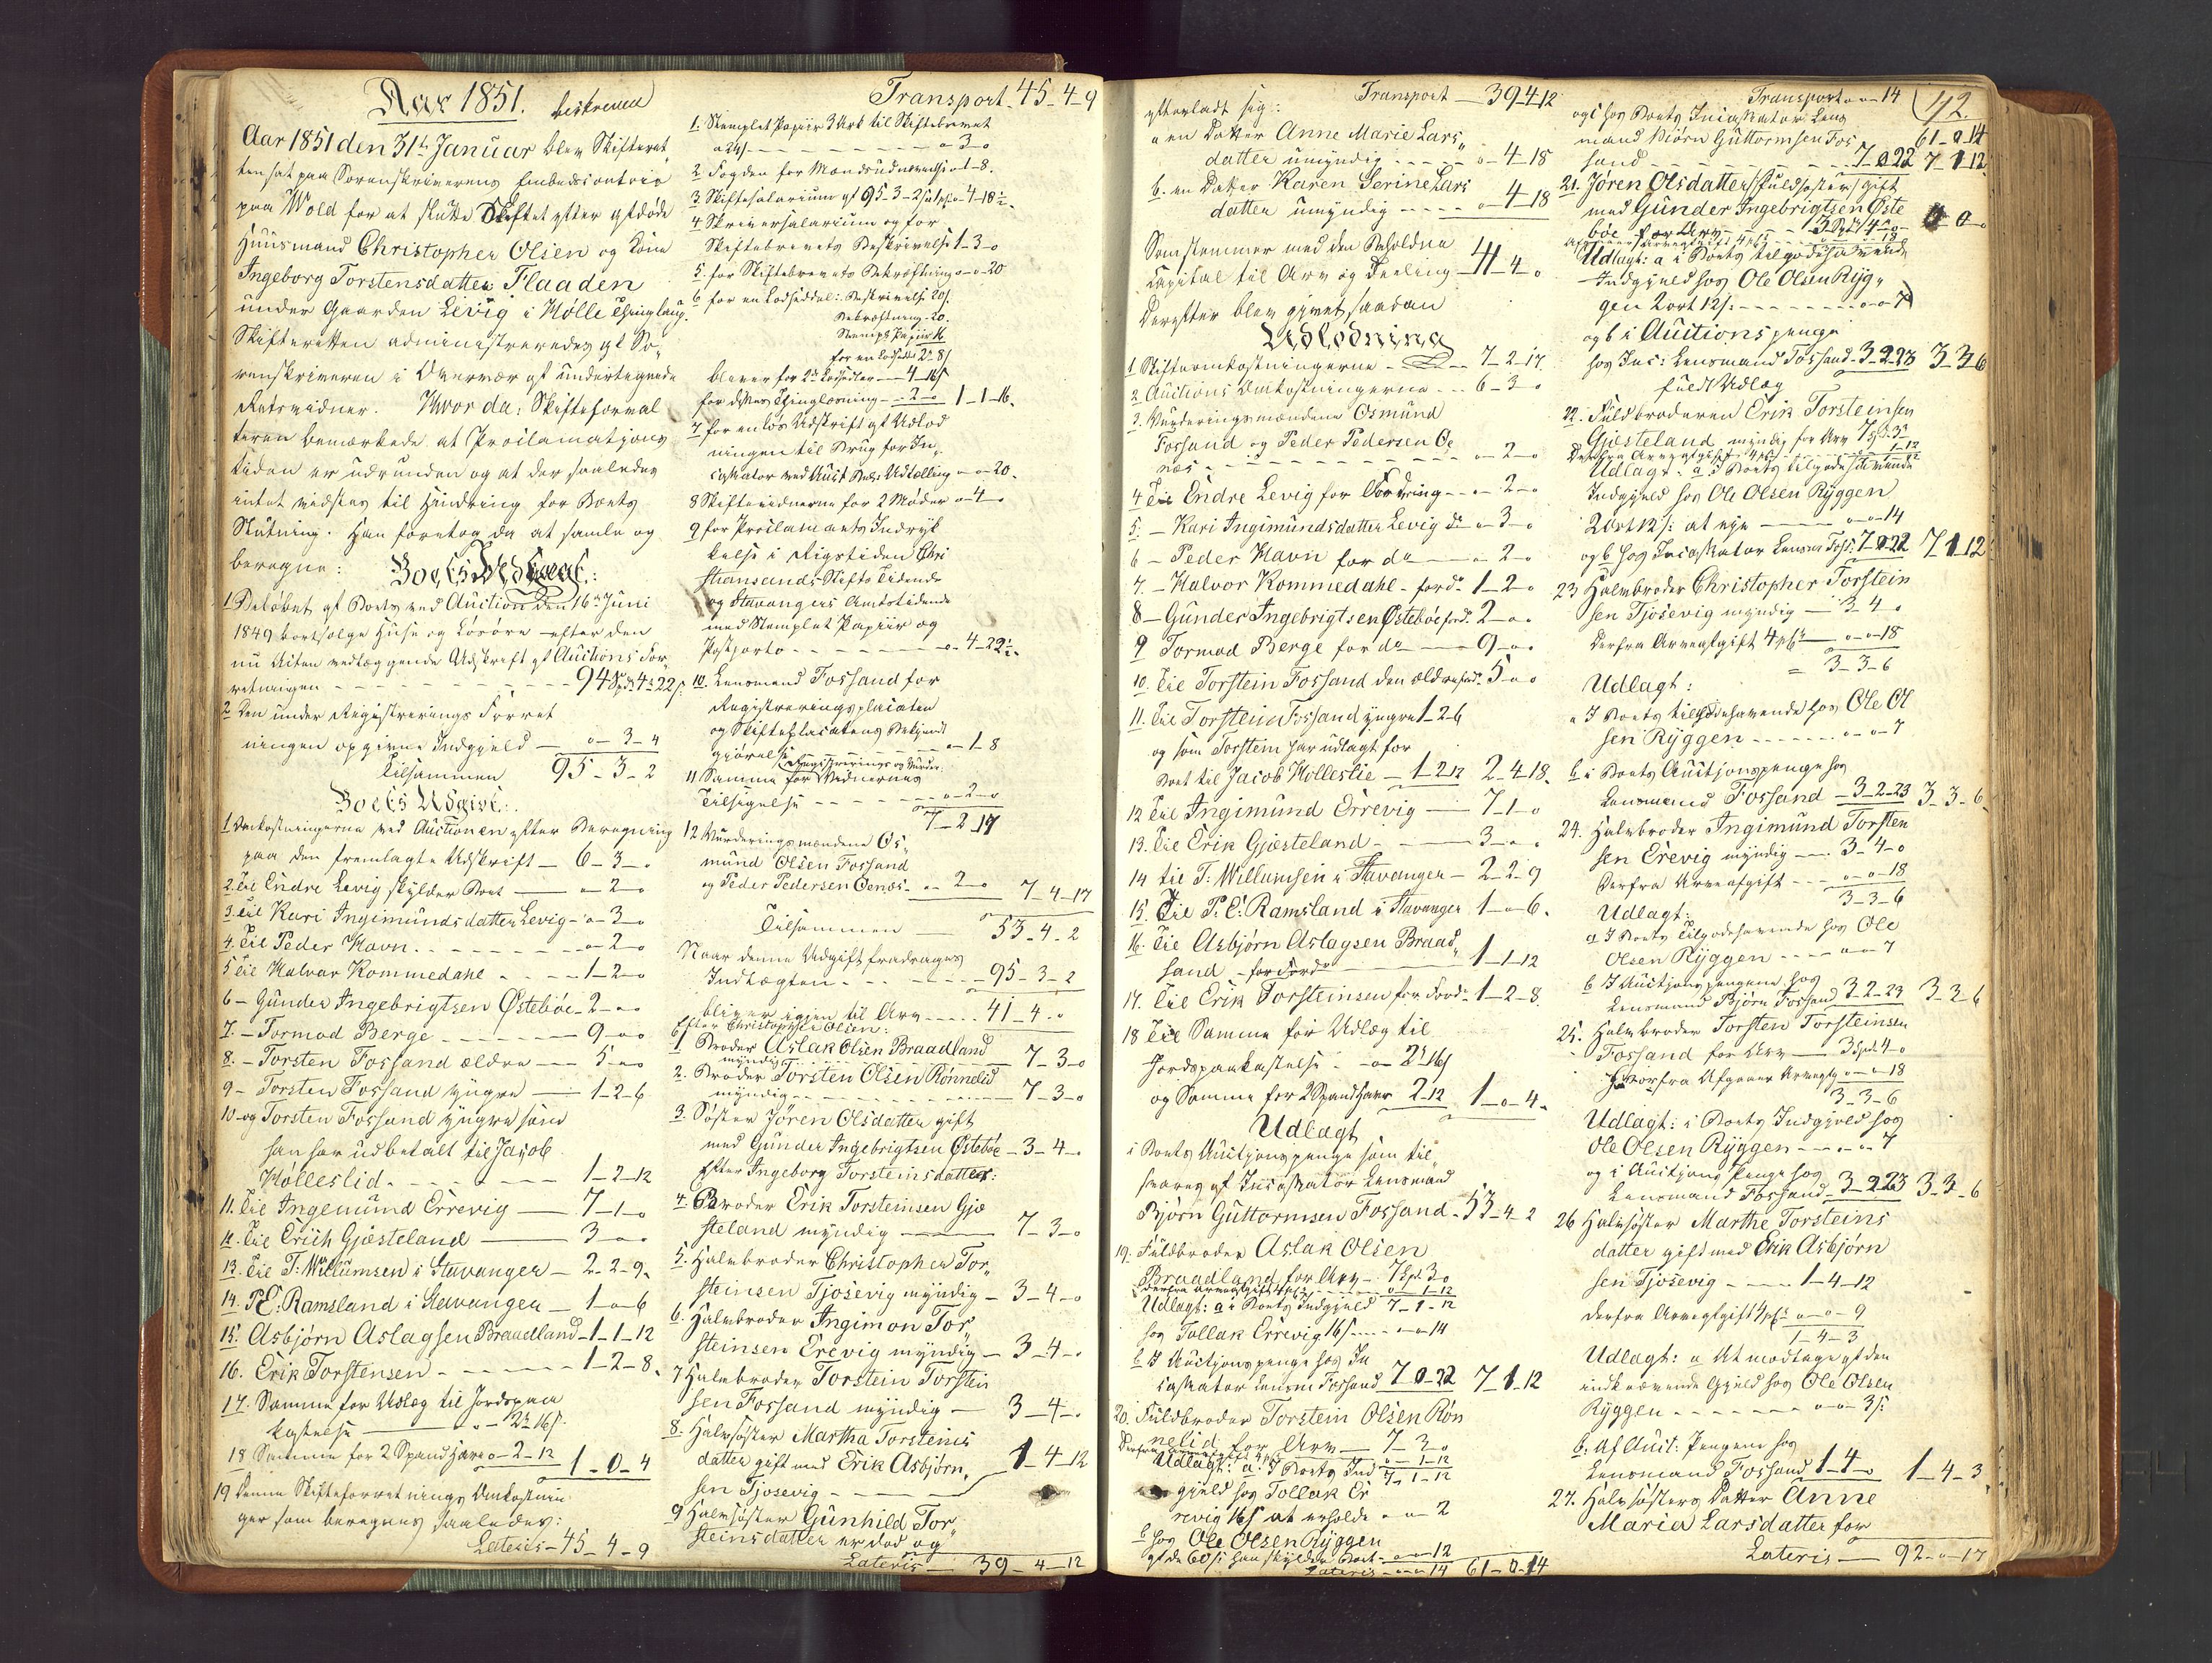 Aar 1851. beskreved
Aar 1851 den 31te Januar blev Skifteret
ten sat paa Sorenskriverens Embedscontoir
paa Wold for at slutte Skiftet efter afdøde
Huusmand Christopher Olsen og Kone
Ingeborg Torstensdatter Flaaden
under Gaarden Levig i Holle Thinglaug.
Skifteretten administreredes af So-
renskriveren i Overvær af undertegnede
Retsvidner. Hvor da: Skifteforval
teren bemærkede at Proclamations
tiden er udrunden og at der saaledes
intet vidstes til Hindring for Boets
Slutning. Han foretog da at samle og
beregne: Boets Indtægt:
1 Beløbet af Boets ved Auction den 16de Juni
1849 bortsolgte Huse og Løsøre efter den
nu Acten vedlæggende Udskrift af Auctions For-
retningen - - - 94 Spd 4 22 s
2 Den under Registrerings Forret
ningen opgivne Indgjeld - o-3-4
Tilsammen 95-3-2
Boets Udgivt:
1 Omkostningerne ved Auctionen efter Beregning
paa den fremlagte Udskrift - 6-3-o
2. Til Endre Levig skylder Boet - o-2-o
3. til Kari Ingimundsdatter Levig - o-3-o
4. Til Peder Havn - - - o-2-o
5 til Halvor Kommedahl - - - 1-2-o
6 - Gunder Ingebrigtsen Østebøe - 2-o-o
7. - Tormod Berge - - - 9-o-o
8. - Torsten Fossand ældre - 5-o-o
9 - Torsten Fossand yngre - 1-2-6
10 og Torsten Fossand yngre som
han har udbetalt til Jacob
Hølleslid - - - 1-2-12
11. Til Ingemund Errevig - 7-1-o
12. til Erich Gjæsteland - 3-o-o
13. til T: Willumsen i Stavanger - 2-2-9
14. P.E: Ramsland i Stavanger - 1-o-6
15. Asbjørn Aslagsen Braadland - 1-1-12
16. Erik Torstensen - - - 1-2-8
17. Samme for Udlæg til Jordspaa
kastelse - o-2 16 s
18 Samme for 2 Spand Havre o-2-12 1-0-4
19 Denne Skifteforretnings Omkostnin
ger som beregnes saaledes:
Lateris - 45-4-9
Transport - 45-4-9
1. Stemplet Papiir 3 Ark til Skiftebrevet
a 24 s - - - o-3-o
2 Fogden for Mandsudnævnelse o-1-8.
3 Skiftesalarium af 95-3-2 s o-4-18½
4 Skriversalarium og for
Skiftebrevets Beskrivelse 1-3-o
5. for Skiftebrevets Bekræftning o-o-20
6 for en Lodseddel: Beskrivelse 20 s
Bekræftning - 20.
Stempl. Papiir 16
for en Lodseddel 2 8 s
bliver for 2de Lodsedler - 4-16 s
for disses Thinglæsning - 2-o 1-1-16.
7 for en løs Udskrift af Udlod
ningen til Brug for In-
cassator ved Auct. Udtælling - o-20.
8 Skiftevidnerne for 2 Møder o-4-o
9 for Proclamaets Indryk
kelse i Rigstiden Chri
stiansands Stifts Tidende
og Stavangers Amtstidende
med Stemplet Papiir og
Postporto - - - o-4-22½
10. Lensmand Fossand for
Registreringsplacaten
og Skifteplacatens Bekjendt
gjørelse - - - o-1-8
11 Samme for Registrerings og Vurder. Vidnernes
Tilsigelse - - - o-2-o
7-2-17
12 Vurderingsmændene Os-
mund Olsen Fossand
og Peder Pedersen Oenæs - o-2-o 7-4-17
Tilsammen - 53-4-2
Naar denne Udgift fradrages
Indtægten - - - 95-3-2
bliver igjen til Arv - - - 41-4-o
Efter Christopher Olsen:
1 Broder Aslak Olsen Braadland
myndig - 7-3-o
2. Broder Torsten Olsen Rønnelid
myndig - - - 7-3-o
3. Søster Jøren Olsdatter gift
med Gunder Ingebrigtsen Østebøe - 3-4-o
Efter Ingeborg Torsteinsdatter:
4 Broder Erik Torsteinsen Gjæ
steland myndig - 7-3-o
5. Halvbroder Christopher Tor-
steinsen Tjosevig myndig - 3-4-o
6. Halvbroder Ingimon Tor-
steinsen Erevig myndig - 3-4-o
7 Halvbroder Torstein Torstein
sen Fossand myndig - 3-4-o
8. Halvsøster Martha Torsteins
datter gift med Erik Asbjørn- 1-4-12
sen Tjosevig - - -
9 Halvsøster Gunhild Tor-
steinsdatter er død og
Lateris - 39-4-12
efterladt sig: Transport - 39-4-12
a en Datter Anne Marie Lars-
datter umyndig - - - o-4-18
b. en Datter Karen Serine Lars
datter umyndig - - - o-4-18
Samstemmer med den Beholdne
Capital til Arv og Deeling - 41-4-o
Derefter blev gjort saadan
Udlodning
1 Skifteomkostningerne - - 7-2-17.
2 Auctions Omkostningerne - - 6-3-o
3. Vurderingsmændene Osmund
Fossand og Peder Pedersen Oe
næs - - - o-2-o
4 Til Endre Levig for Fordring - o-2-o
5. - Kari Ingimundsdatter Levig do - o-3-o
6 - Peder Havn for do - o-2-o
7. - Halvor Kommedahl - for do 1-2-o
8 - Gunder Ingebrigtsen Østebøe for do 2-o-o
9 Tormod Berge for do - 9-o-o
10. til Torstein Fossand den ældre for do 5-o-o
11. Til Torstein Fossand yngre 1-2-6
og som Torstein har udlagt for
Boet til Jacob Holleslie - 1-2-12 2-4-18.
12 Til Ingimund Errevig - 7-1-o
13. Til Erik Gjæsteland - - 3-o-o
14 til T: Willumsen i Stavanger - 2-2-9
15. Til P.E: Ramsland i Stavanger 1-o-6.
16. til Asbjørn Aslagsen Braad-
sand - for Fordr - 1-1-12
17. til Erik Torsteinsen for Ford - 1-2-8.
18 Til Samme for Udlæg til
Jordspaakastelse: - o-2 16 s
og Samme for 2 Spand Havre 2-12 1-o-4.
Udlagt
i Boets Auctionspenge som til-
svares af Incassator Lensmand
Bjørn Guttormsen Fossand - 53-4-2
19. Fuldbroder Aslak Olsen
Braadland for Arv - 7 Spd 3-o
derfra Arveafgift 4 pCt - - o-1-12
Udlagt: a i Boets Indgjeld 7-1-12
hos Tollak Errevig 16 s - - o-o-14
b I Auctionspenge hos In
cassator Lensm Fossand 7-0-22 7-1-12
20. Fuldbroder Torstein Olsen Røn
nelid for Arv - 7-3-o
Derfra Arveafgift 4 pCt o-1-12
Udlagt: a. I Boets Ind 7-1-12
gjeld hos Tollak Er
revig 16 s at erholde - o-o-2
b hos Ole Olsen Ryggen
af de 60 s han skylder Boet - o-o-12
Lateris - o-o-14 61-0-14
Transport o-o-14 42.
og c hos Boets Incassator Lens 61-0-14
mand Biørn Guttormsen Fos
sand - - - 7-0-22 7-1-12
21. Jøren Olsdatter (Fuldsøster) gift
med Gunder Ingebrigtsen Øste
bøe for Arv - 3 Spd 4-o-
Afgaaer Arveafgift 4 pCt - - 18
Udlagt: a i Boets tilgodehavende
Indgjeld hos Ole Olsen Ryg-
gen 2 ort 12 s: - - - o-o-7
og b i Auctionspenge
hos Inc: Lensmand Fossand - 3-2-23 3-3-6
fuldt Udlæg
22. Fuldbroderen Erik Torsteinsen
Gjæsteland myndig for Arv 7 Spd 3-
Derfra Arveafgift 4 pCt - 1-12
Udlagt - a I Boets tilgodehavende
Indgjeld hos Ole Olsen Ryggen
2 Ort 12 s: at eje - o-o-14
og b hos Incassator Lensm Foss: 7-0-22 7-1-12
23 Halvbroder Christopher Torstein
sen Tjosevig myndig - 3-4-o
Derfra Arveafgift 4 pCt - o-o-18
= 3-3-6
Udlagt:
a I Boets tilgodehavende hos Ole Ol
sen Ryggen - - - o-o-7
b i Boets Auctionspenge hos
Lensmand Fossand - 3-2-23 3-3-6.
24. Halvbroder Ingimund Torsten
sen Erevig myndig - 3-4-o
Derfra Arveafgift - - - o-o-18
3-3-6
Udlagt:
a I Boets Tilgodehavende hos Ole
Olsen Ryggen - - - o-o-7
b I Auctionspengene hos
Lensmand Bjørn Fossand 3-2-23 3-3-6
25. Halvbroder Torsten Torsteinsen
Fossand for Arv - 3 Spd 4-o
Hvorfra Afgaaer Arveafg o-o-18
3-3-6
Udlagt: i Boets Indgjeld hos
Ole Olsen Ryggen - - o-o-7
og i Auctions Penge hos
Lensmand Fossand - 3-2-23 3-3-6
26 Halvsøster Marthe Torsteins
datter gift med Erik Asbjørn
sen Tjosevig - - - 1-4-12
derfra Arveafgift 4 pCt o-o-9
1-4-3
Udlagt: a At modtage af den
indkrævende Gjeld hos Ole Olsen
Ryggen - - - o-o-3 s:
b. Af Auct: Pengene hos
Lensmand Fossand 1-4-o 1-4-3
27. Halvsøsters Datter Anne
Maria Larsdatter for
Lateris - 92-o-17